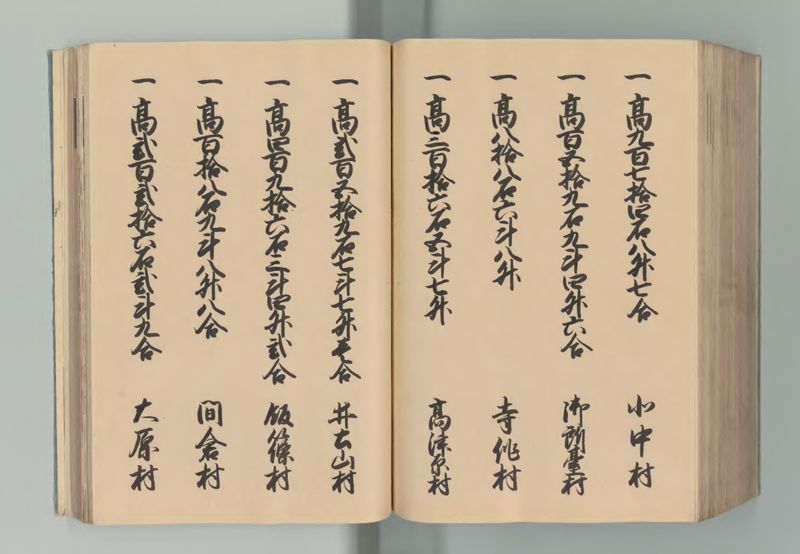 一 高九百七拾四石八升七合 北中村
一 高百五拾九石九斗四升六合 御所臺村
一 高八拾八石六斗八升 寺作村
一 高三百拾六石五斗七升 高津原村
一 高貳百五拾九石七斗七升壱合 井戸山村
一 高四百九拾六石三斗四升貳合 飯篠村
一 高百拾八石九斗八升八合 間倉村
一 高貳百貳拾六石貳斗九合 大原村